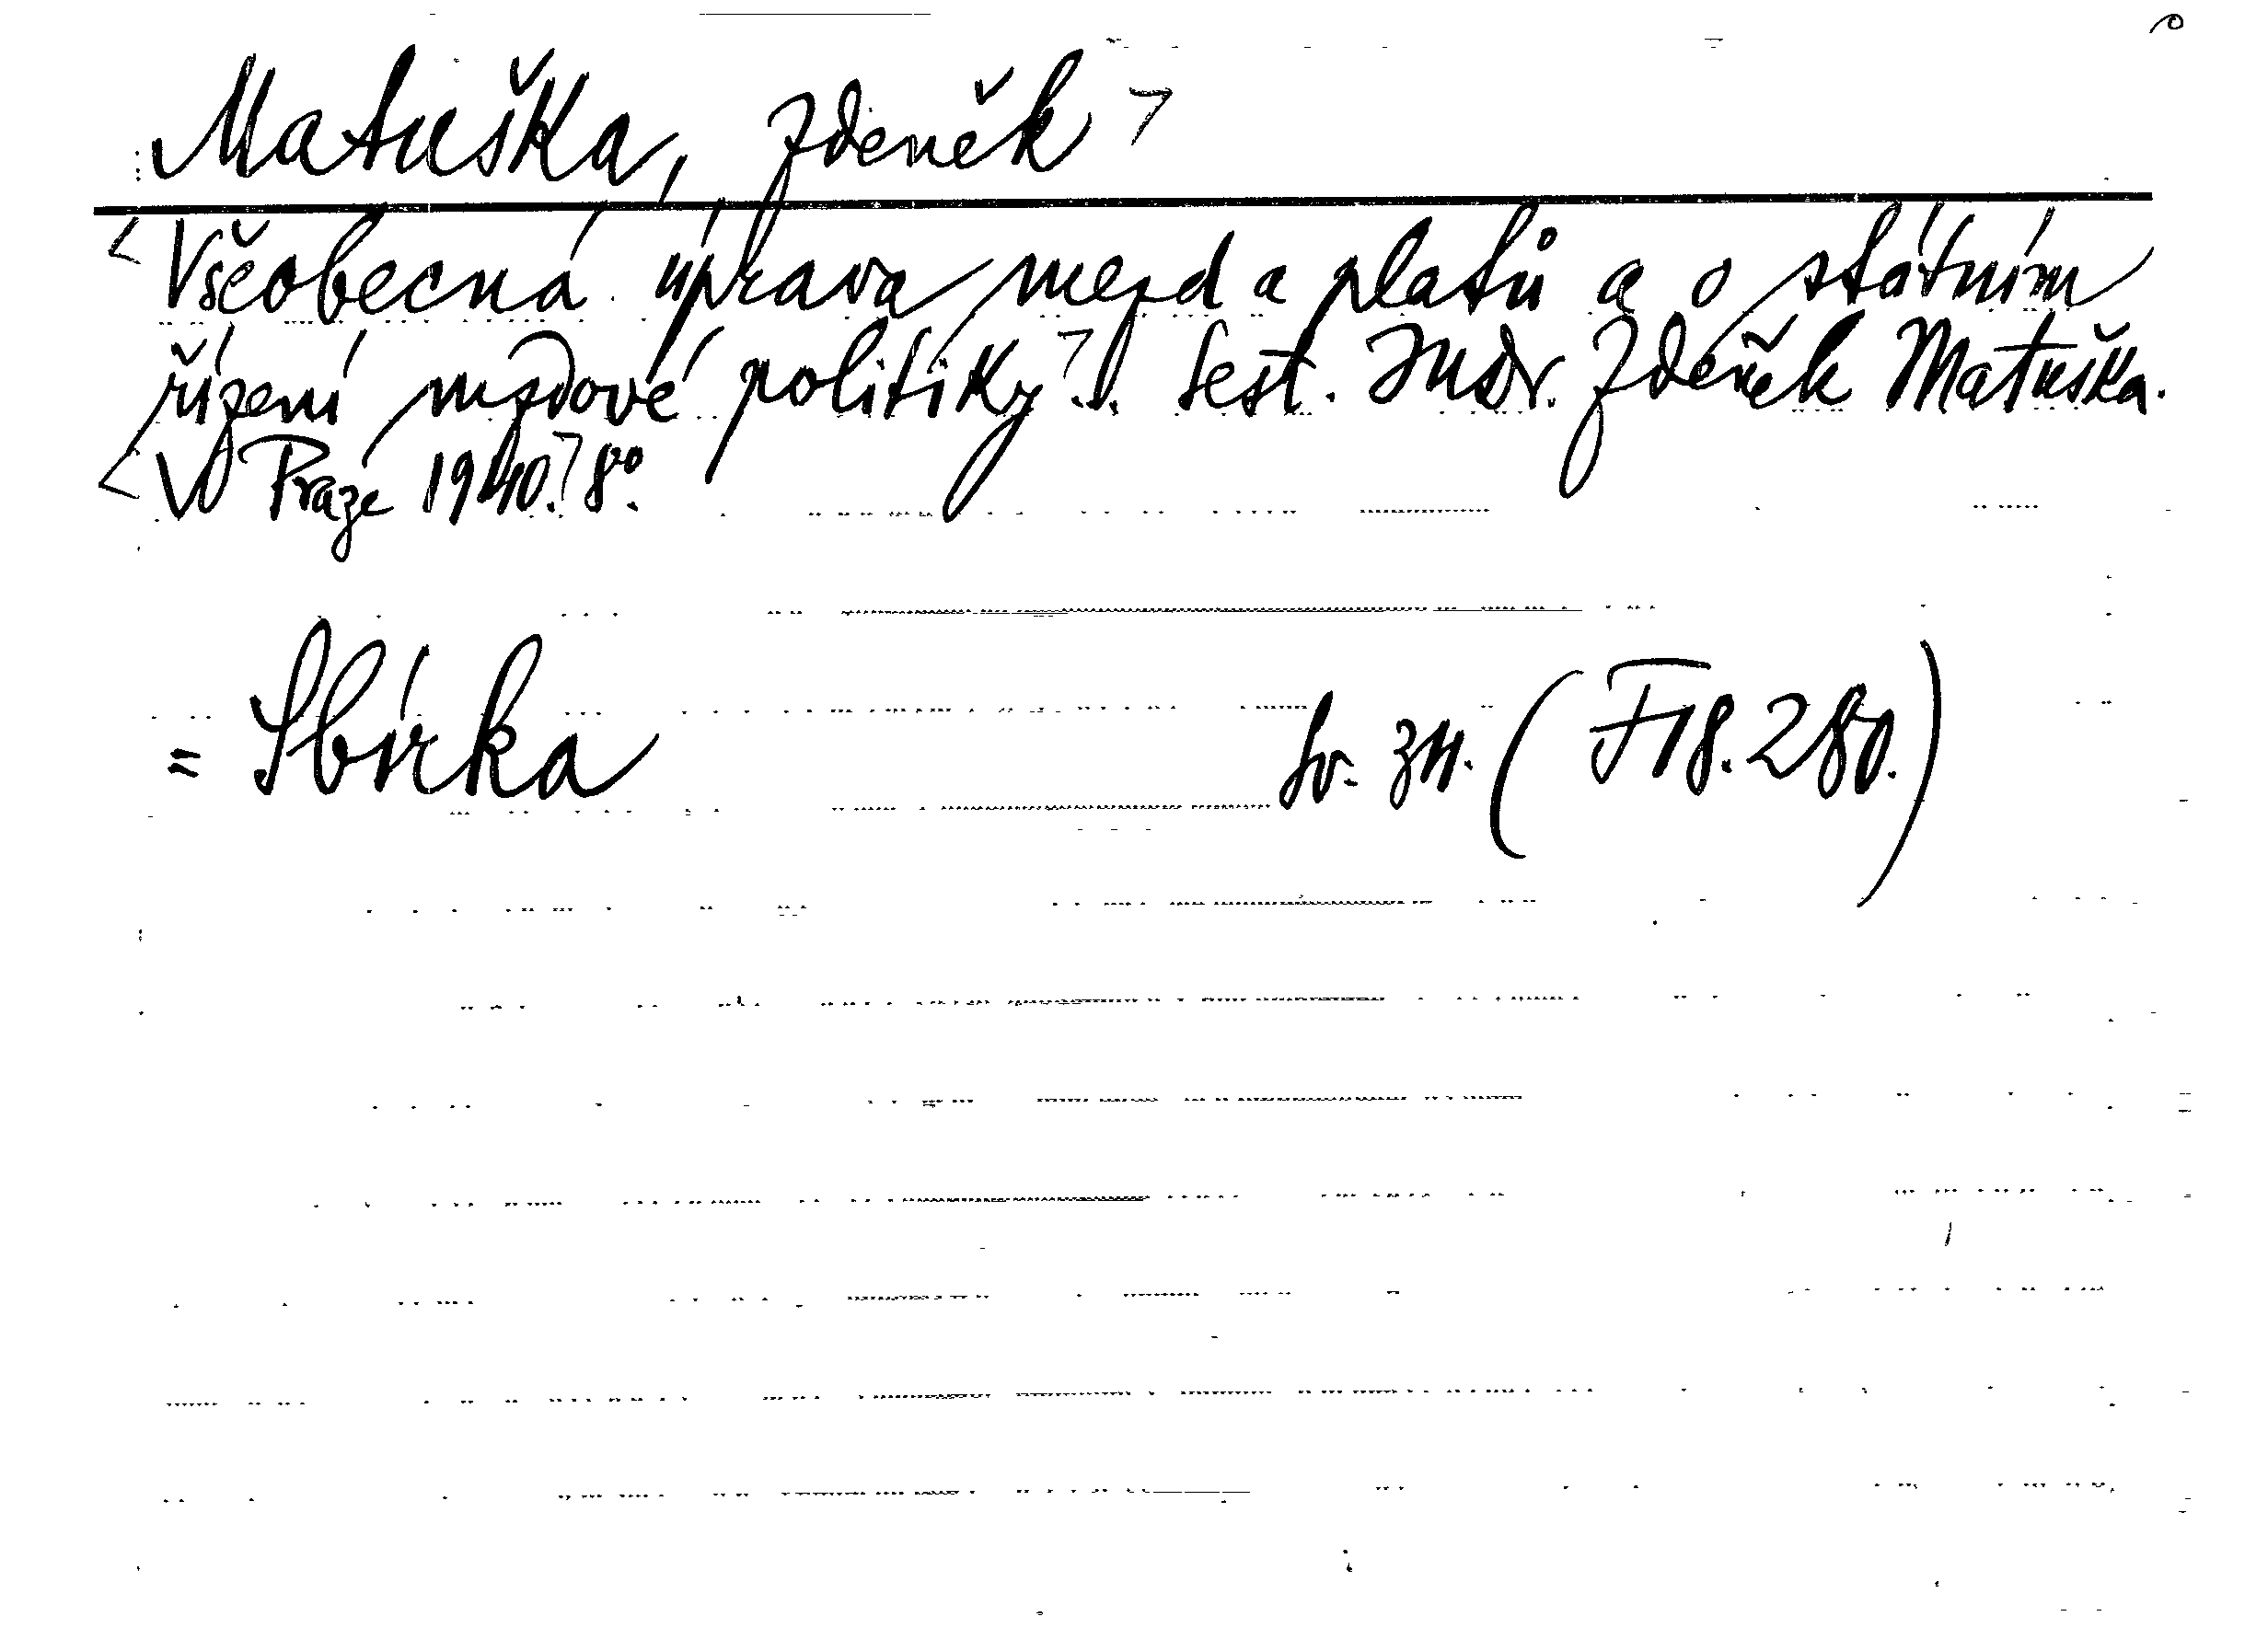 Matuška, Zdeněk
Všeobecná úprava mezd a platů a o státním
řízení mzdové politiky... Sest. JUDr. Zdeněk Matuška.
V Praze 1940. 8°.
= Sbírka sv. zn. (F 18.280.)